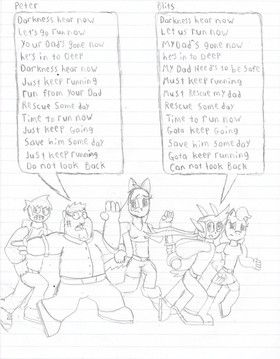 Peter
Darkness hear now
Let's go run now
Your Dad's gone now
he's in to Deep
Darkness hear now
Just keep running
run from your Dad
Rescue Some day
Time to run now
Just keep Going
Save him Some day
Just keep running
Do not look Back
Blits
Darkness hear now
Let us run now
My Dad's gone now
hes in to Deep
My Dad Need's to be Safe
Must keep running
Must Rescue my dad
Rescue Some day
Time to run now
Gota keep Going
Save him Some day
Gota keep running
Can not look Back